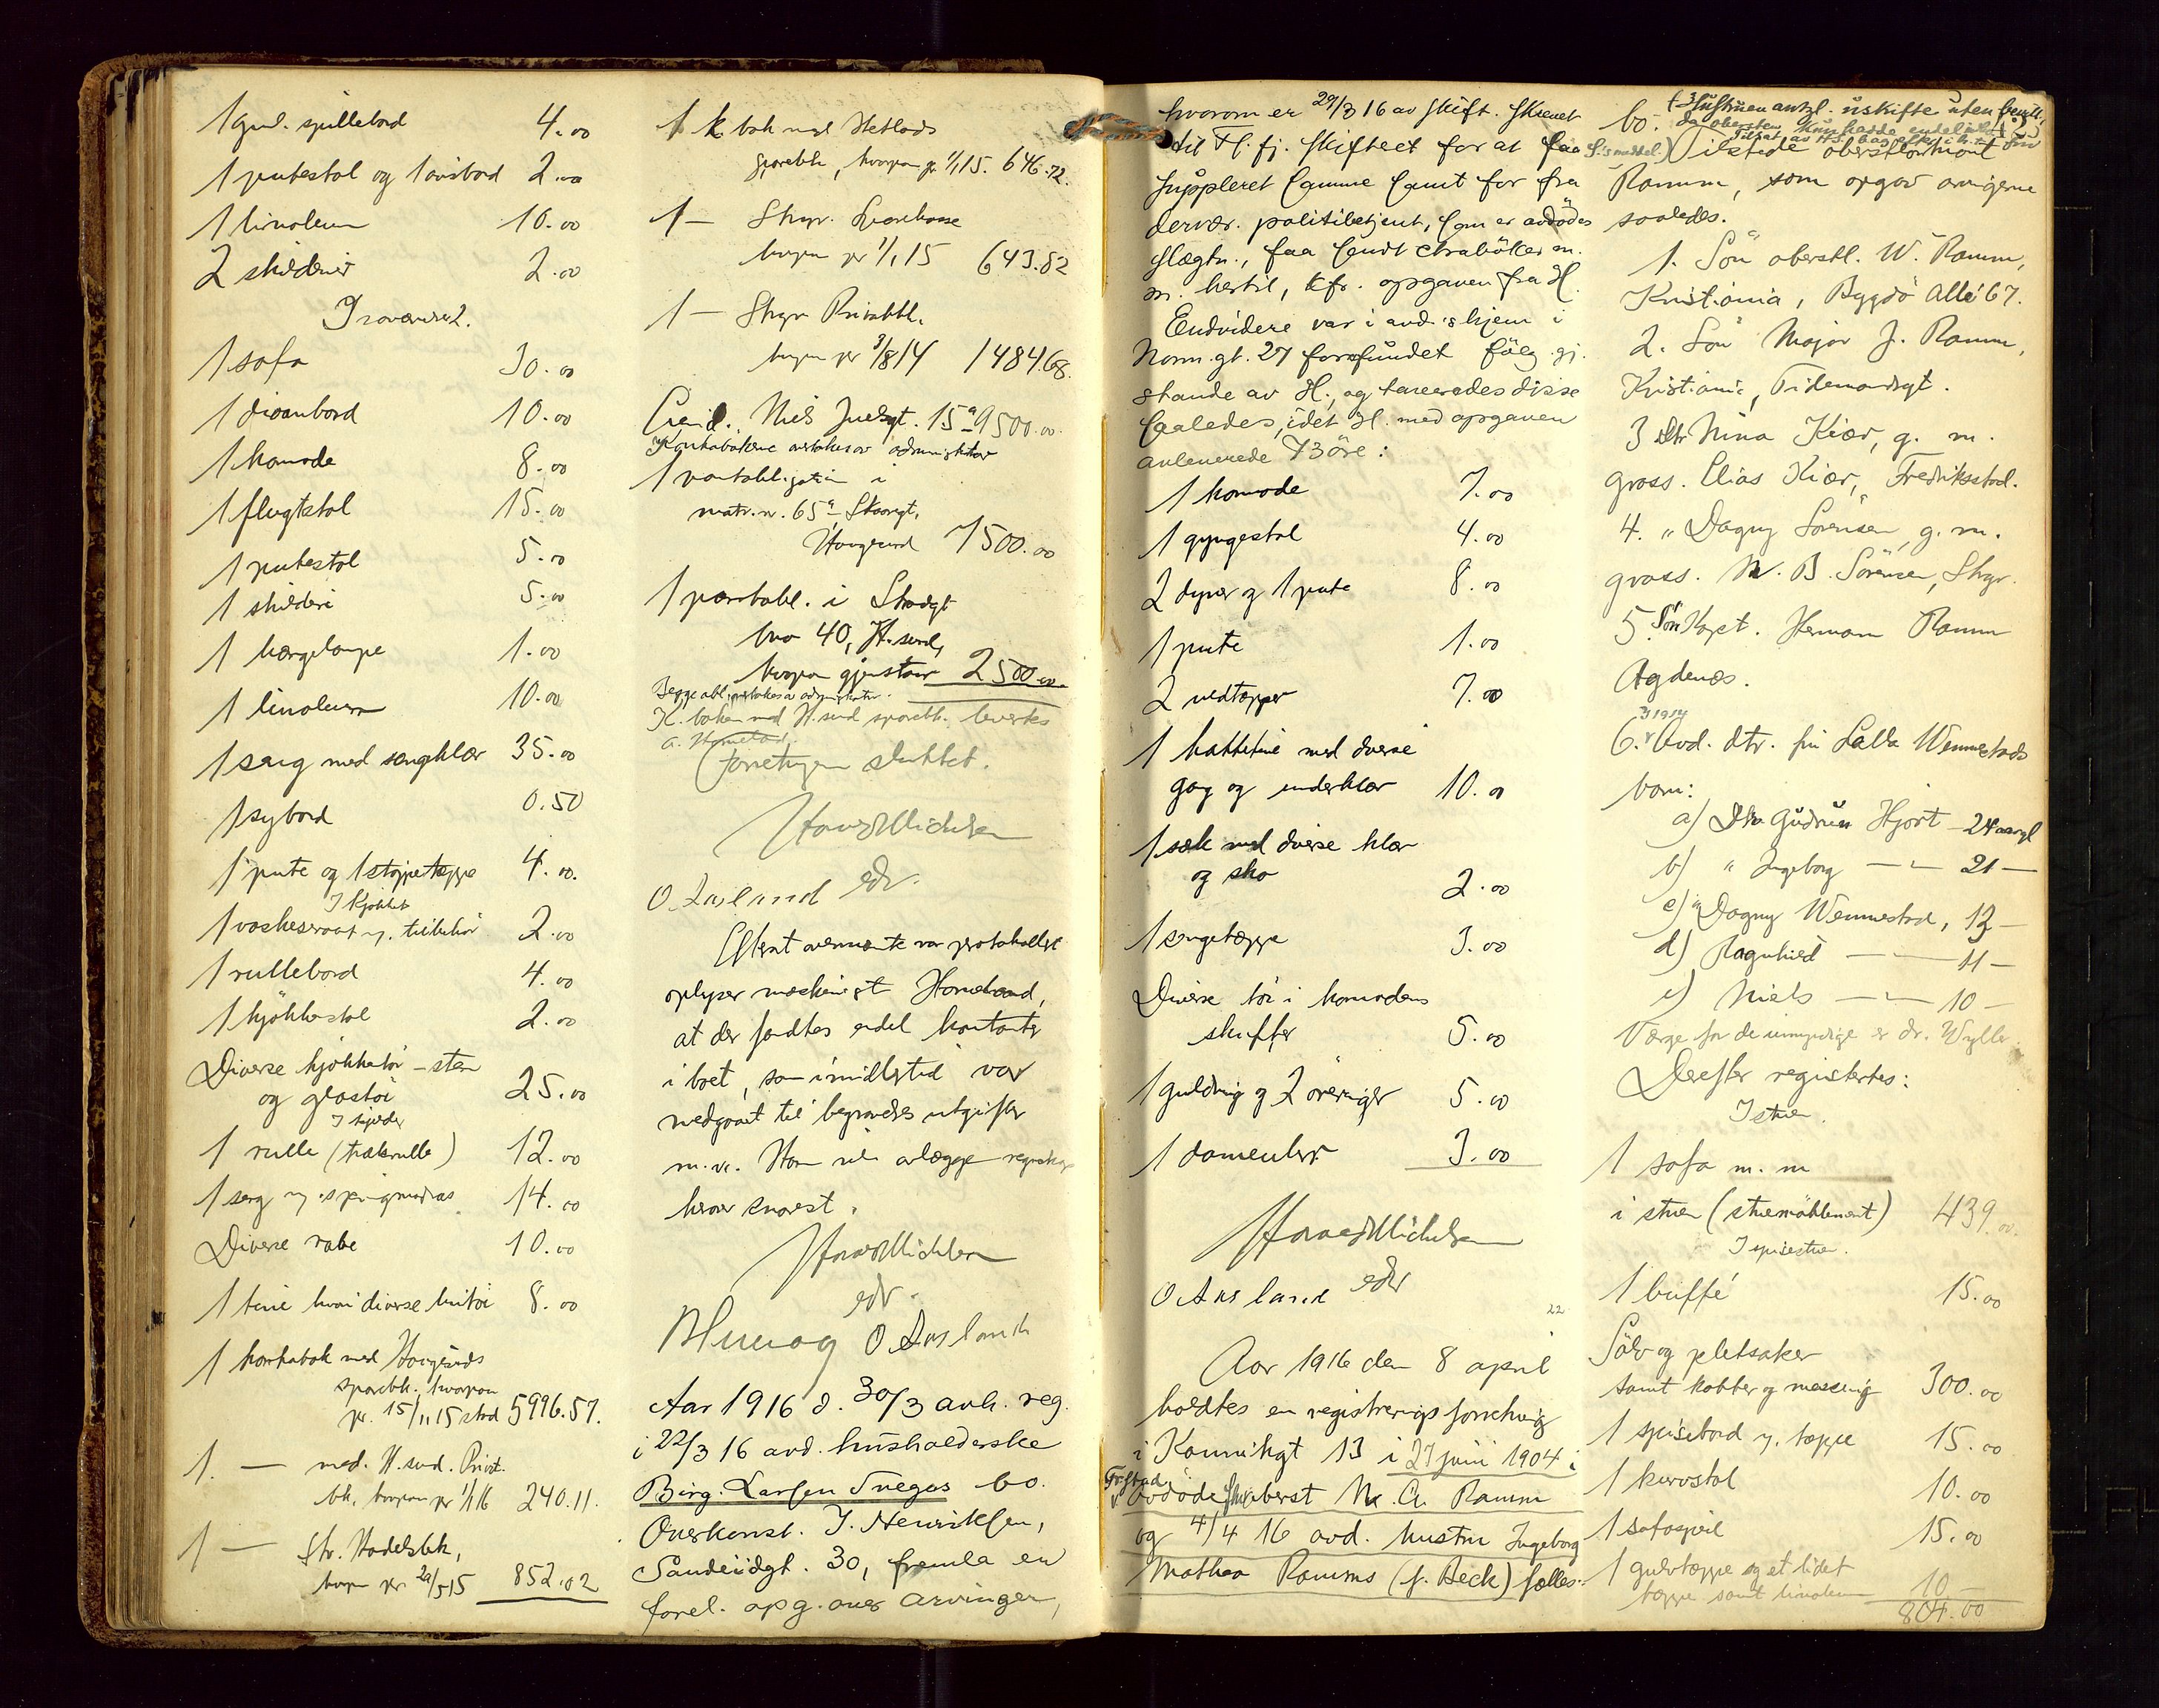 1 gml. spillebord 4.00
1 putestol og 1 avisbord 2.00
1 linoleum 10.00
2 skilderier 2.00
I soveværelse 2.
1 sofa 30.00
1 divanbord 10.00
1 komode 8.00
1 flugtstol 15.00
1 putestol 5.00
1 skilderi 5.00
1 hængelampe 1.00
1 linoleum 10.00
1 seng med sengklær 35.00
1 sybord 0.50
1 pute og 1 stoppeteppe 4.00.
I kjøkket
1 vaskeservant m. tilbehør 2.00
1 rullebord 4.00
1 kjøkkenstol 2.00
Diverse kjøkkentøi – sten
og glastøi 25.00
I kjelder
1 rulle (trækrulle) 12.00
1 seng m. springmadras 14.00
Diverse rabe 10.00
1 tine hvori diverse lintøi 8.00
1 kontrabok med Haugesunds
sparebk. hvorpaa
pr. 15/11 15 stod 5996.57.
1. — med. H.sund. Privat.
bk. hvorpaa pr 1/1 16 240.11.
1 — Handelsbk,
hvorpaa pr. 5 15 852.02
1 k. bok med Hetlands
sparebk, hvorpaa pr 1/1 15. 646.72.
1 — Stvgr. Sparekasse
hvorpaa pr 1/1 15 643.82
1 — Stvgr Privatbk.
hvorpaa pr 3/8 14 1484.68.
Eiend. Niels Juelsgt. 15a 9500.00.
Kontrabøkene mottokes av administrator
1 pantobligation i
matr. nr. 65a Skaaregt,
Haugesund 7500.00
1 pantobl. i Strandgt
bno 40, H.sund,
hvorpaa gjenstaar 2500.00.
Begge obl. mottokes av administrator.
K. boken med H.sund sparebk. levertes
a. Homeland.
Forretningen sluttet.
Hans Michelsen
O. Aasland edv.
Efterat ovennævnte var protokollert
oplyser maskinist Homeland,
at der fandtes endel kontanter
i boet, som imidlertid var
medgaat til begravelses utgifter
m.v. Han vil avlægge regnskap
herover snarest.
Hans Michelsen
edv.
O Aasland
Aar 1916 d. 30/3 avh. reg.
i 22/3 16 avd. husholderske
Birg. Larsen Snegas bo.
Overkonst. J. Henriksen,
Sandeidgt. 30, fremla en
forel. opg. over arvinger,
hvorom er 29/3 16 av skift. skrevet
til Fl.fj. skifteret for at faa
suppleret samme samt for fra
dervær. politibetjent, som er avdødes
slægtn., faa sendt chrabøker m.
m. hertil, kfr. opgaven fra H.
Endvidere var i avd's hjem i
Norm.gt. 27 forefundet følg. gj.
stande av H., og taxeredes disse
saaledes, idet H. med opgaven
avleverede 73 øre:
1 komode 7.00
1 gyngestol 4.00
2 dyner og 1 pute 8.00
1 pute 1.00
2 uldtepper 7.00
1 hattetine med diverse
gag og underklær 10.00
1 sæk med diverse klær
og sko 2.00
1 sengetæppe 3.00
Diverse tøi i komodens
skuffer 5.00
1 guldring og 2 øreringer 5.00
1 dameuhr 3.00
Hans Michelsen
O Aasland edv
22
Aar 1916 den 8 april
holdtes en registreringsforretning
i Kannikgt 13 i 27 juni 1904 i
avdøde oberst N. C. Ramm
og 4/4 16 avd. hustru Ingeborg
Mathea Ramms (f. Beck) fælles-
bo. (Hustruen antgl. uskifte uten bevill.
Tilstede oberstløitnant
Ramm, som opgav arvingerne
saaledes.
1. Søn oberstl. W. Ramm,
Kristiania, Bygdø Allé 67.
2. Søn Major J. Ramm,
Kristiania, Tidemandsgt.
3 Dtr Nina Kiær, g. m.
gross. Elias Kiær, Fredriksstad.
4. " Dagny Sørensen, g. m.
gross. N. B. Sørensen, Stvgr.
5 Søn Kapt. Herman Ramm
Agdenæs.
6. Avd. dtr. fru Lalla Wennestads
barn:
a) Dtr Gudrun Hjort 24 aar gl
b) " Ingeborg — " — 21 —
c) " Dagny Wennestad, 13 —
d) Ragnhild — " — 11 —
e) Niels — " — 10 —
Værge for de umyndige er dr. Wylle.
Derefter registertes:
I stuen.
1 sofa m. m
i stuen (stuemøblement) 439.00.
I spisestuen.
1 buffé 15.00
Sølv og pletsaker
samt kobber og messing 300.00
1 spisebord m. teppe 15.00
1 kurvstol 10.00
1 sofaspeil 15.00
1 gulvteppe og et lidet
teppe samt linoleum 10 —
804.00